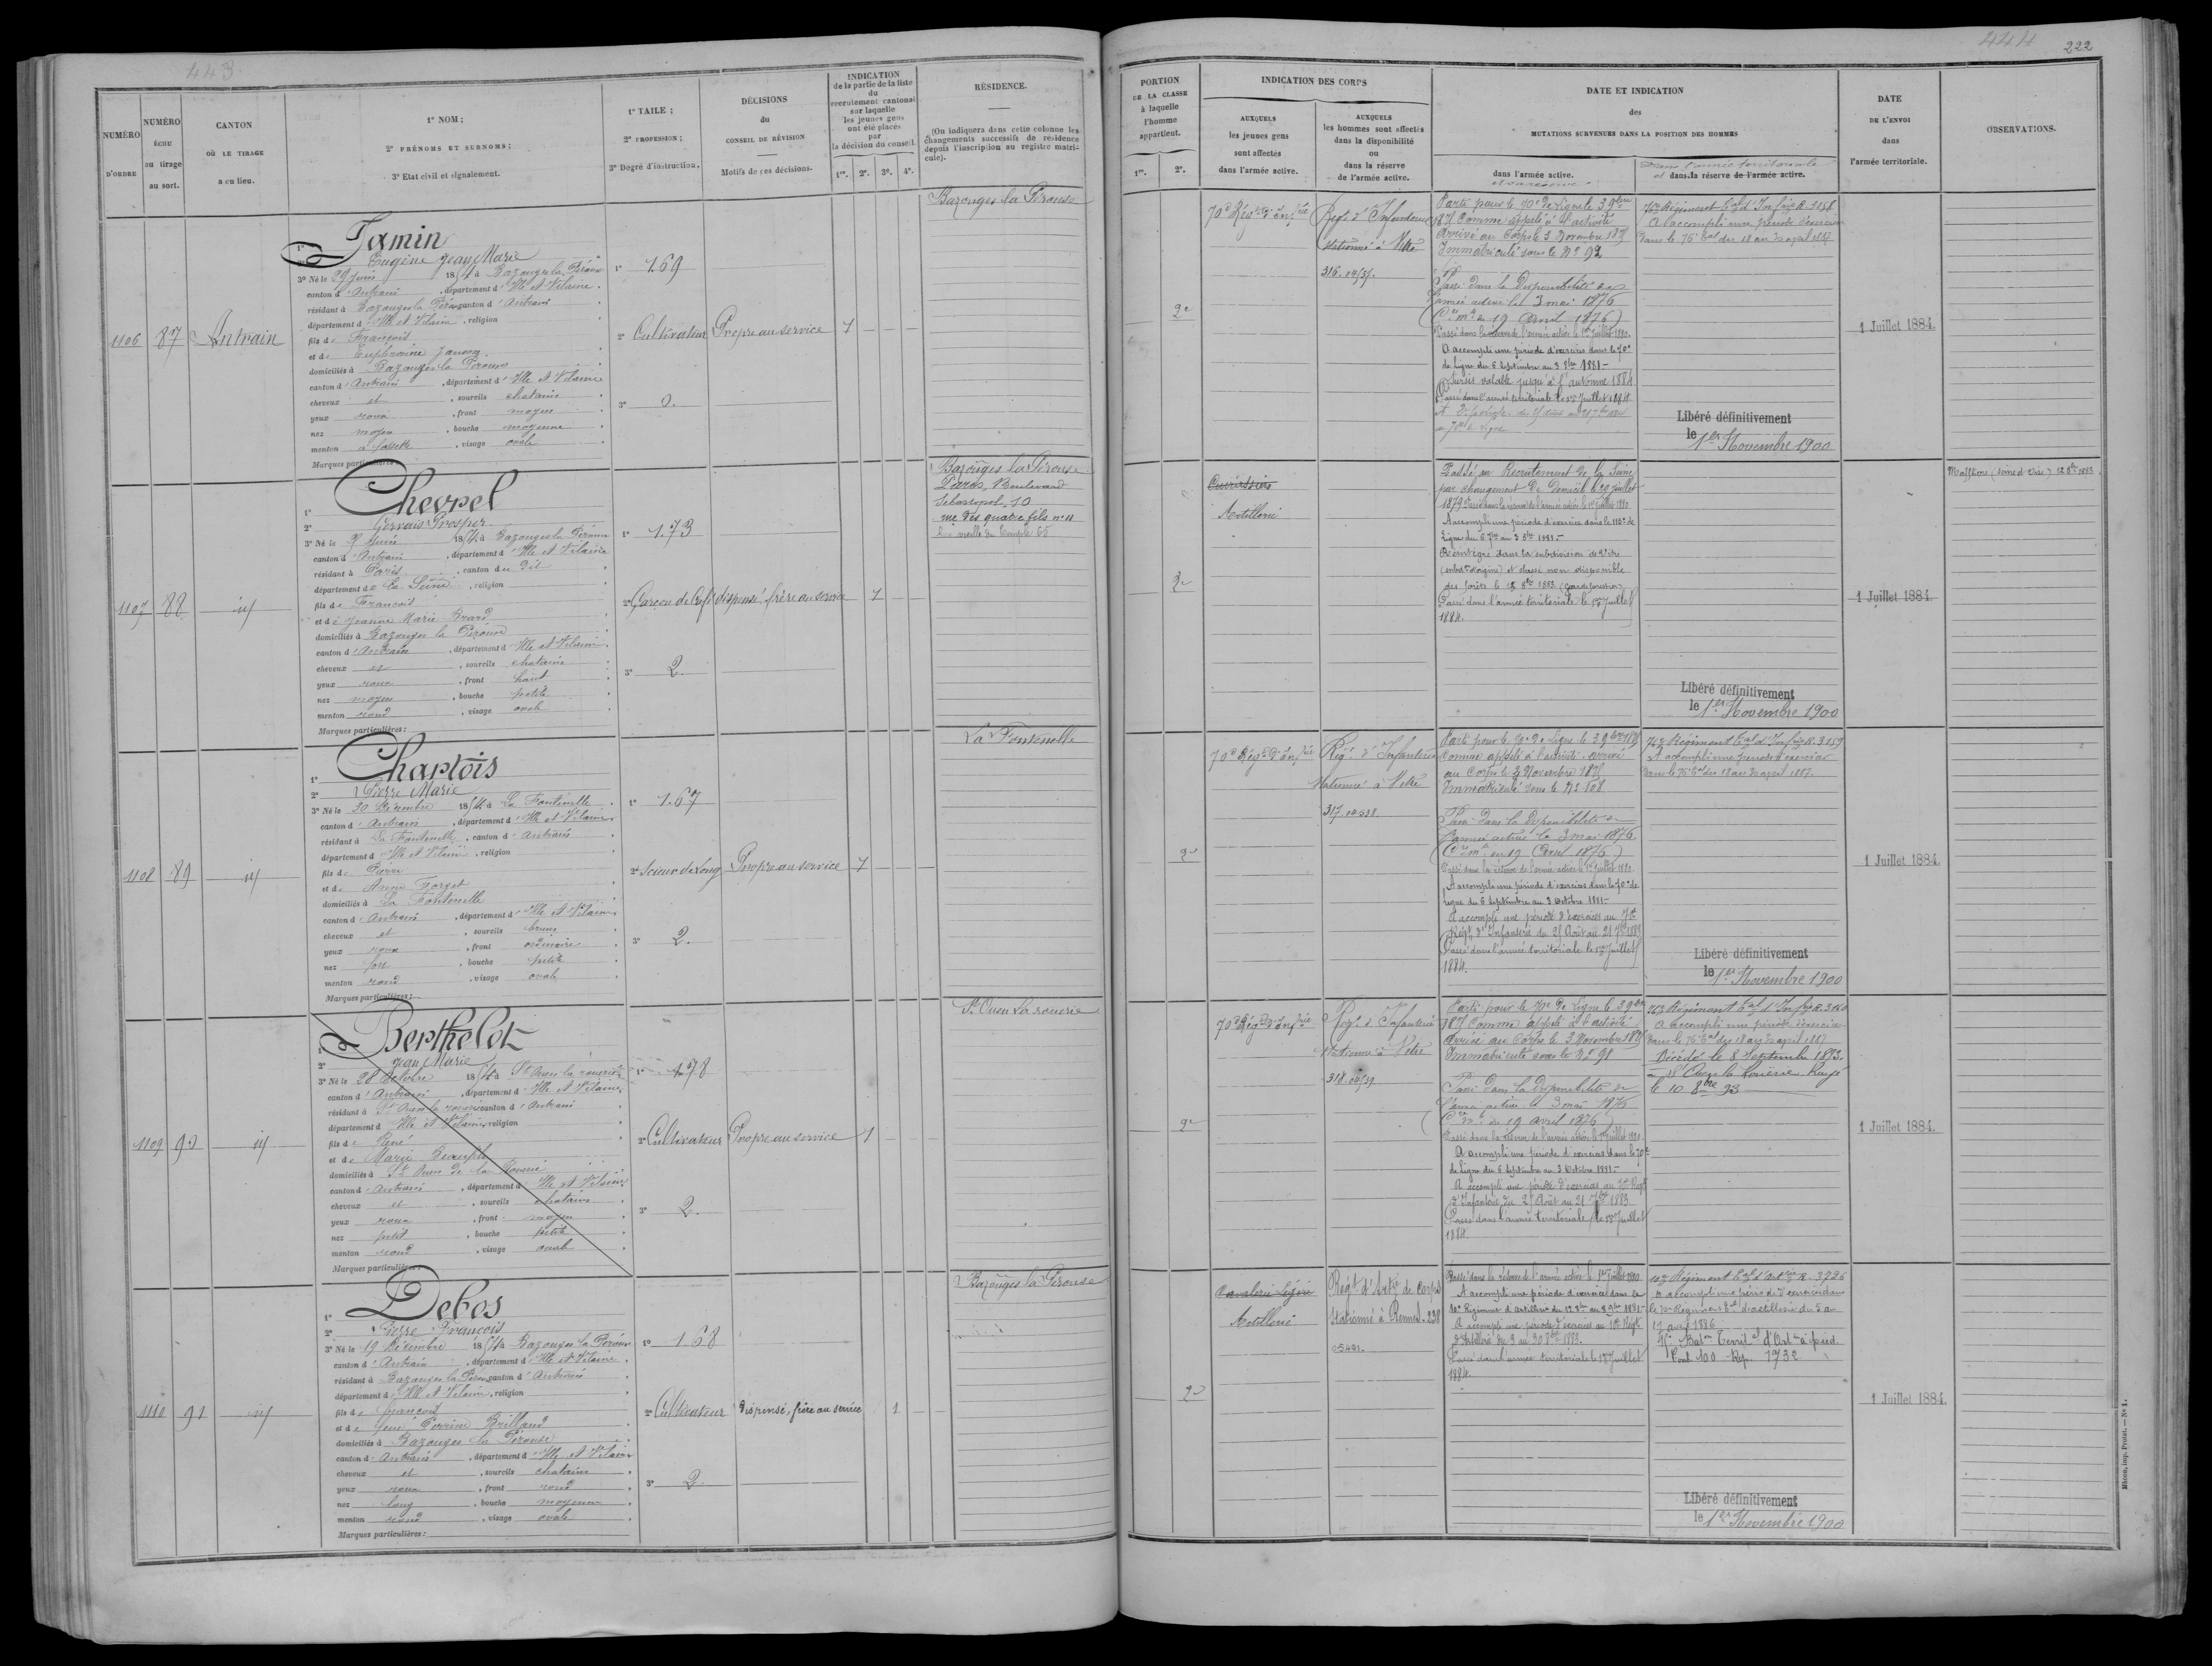 443.
NUMÉRO D'ORDRE
NUMÉRO ÉCHU au tirage au sort.
CANTON OÙ LE TIRAGE a eu lieu.
1° NOM ;
2° PRÉNOMS ET SURNOMS ;
3° Etat civil et signalement.
1° TAILE ;
2° PROFESSION ;
3° Degré d'instruction.
DÉCISIONS du CONSEIL DE RÉVISION
Motifs de ces décisions.
INDICATION
de la partie de la liste
du
recrutement cantonal
sur laquelle
les jeunes gens
ont été placés
par
la décision du conseil
1re. 2e. 3e. 4e.
RÉSIDENCE.
(On indiquera dans cette colonne les
changements successifs de résidence
depuis l'inscription au registre matri-
cule).
1106 87 Antrain
1° Jamin
2° Eugène Jean Marie
3° Né le 29 Juin 1854 à Bazouges la Pérouse
canton d'Antrain, département d'Ille et Vilaine.
résidant à Bazouges la Pérouse canton d'Antrain
département d'Ille et Vilaine, religion
fils de François
et de Euphrasine
domiciliés à Bazouges la Pérouse
canton d'Antrain, département d'Ille et Vilaine
cheveux et, sourcils chatains
yeux roux, front moyen
nez moyen, bouche moyenne
menton à fossette, visage ovale
Marques particulières :
1° 1.69
2° Cultivateur
3° 0.
Propre au service 1
Bazouges la Pérouse
1107 88 id
1° Chevrel
2° Gervais Prosper
3° Né le 1854 à Bazouges la Pérouse
canton d'Antrain, département d'Ille et Vilaine
résidant à Paris, canton du dit
département de la Seine, religion
fils de François
et de Jeanne Marie Brard
domiciliés à Bazouges la Pérouse
canton d'Antrain, département d'Ille et Vilaine.
cheveux et, sourcils chatains
yeux roux, front haut
nez moyen, bouche petite
menton rond, visage ovale
Marques particulières :
1° 1.73
2° Garçon de Café
3° 2.
dispensé, frère au service 1
Bazouges la Pérouse
Paris, Boulevard
Sébastopol, 10
rue des quatre fils n° 11
rue vieille du Temple 65
1108 89 id
1° Chartois
2° Pierre Marie
3° Né le 30 Décembre 1854 à La Fontenelle
canton d'Antrain, département d'Ille et Vilaine
résidant à La Fontenelle, canton d'Antrain
département d'Ille et Vilaine, religion
fils de Pierre
et de Anne Forget
domiciliés à La Fontenelle
canton d'Antrain, département d'Ille et Vilaine
cheveux et, sourcils bruns
yeux roux, front ordinaire
nez fort, bouche petite
menton rond, visage ovale
Marques particulières :
1° 1.67
2° Scieur de Long
3° 2.
Propre au service 1
La Fontenelle
1109 90 id
1° Berthelot
2° Jean Marie
3° Né le 28 Octobre 1854 à St Ouen la rouerie
canton d'Antrain, département d'Ille et Vilaine
résidant à St Ouen la rouerie canton d'Antrain
département d'Ille et Vilaine, religion
fils de René
et de Marie Beaufils
domiciliés à St Ouen de la Rouerie
canton d'Antrain, département d'Ille et Vilaine
cheveux et, sourcils chatains
yeux roux, front moyen
nez petit, bouche petite
menton rond, visage ovale
Marques particulières :
1° 1.78
2° Cultivateur
3° 2.
Propre au service 1
St Ouen la rouerie
1110 91 id
1° Debos
2° Pierre François
3° Né le 19 Décembre 1854 à Bazouges la Pérouse
canton d'Antrain, département d'Ille et Vilaine
résidant à Bazouges la Pérouse canton d'Antrain
département d'Ille et Vilaine, religion
fils de François
et de Perrine Brilland
domiciliés à Bazouges la Pérouse
canton d'Antrain, département d'Ille et Vilaine
cheveux et, sourcils chatains
yeux roux, front rond
nez long, bouche moyenne
menton rond, visage ovale
Marques particulières :
1° 1.68
2° Cultivateur
3° 2
Dispensé, frère au service 1
Bazouges la Pérouse
444 222
PORTION
DE LA CLASSE
à laquelle
l'homme
appartient.
1re. 2e.
INDICATION DES CORPS
AUXQUELS
les jeunes gens
sont affectés
dans l'armée active.
AUXQUELS
les hommes sont affectés
dans la disponibilité
ou
dans la réserve
de l'armée active.
DATE ET INDICATION
des
MUTATIONS SURVENUES DANS LA POSITION DES HOMMES
dans l'armée active.
et sa réserve.
Dans l'armée territoriale
et dans la réserve de l'armée active.
DATE
DE L'ENVOI
dans
l'armée territoriale.
OBSERVATIONS.
2e
70e Régt d'Infrie
Régt d'Infanterie
stationné à Vitré
316.
Parti pour le 70e de Ligne le 3 9bre
1875 Comme appelé à l'activité
Arrivé au Corps le 3 Novembre 1875
Immatriculé sous le N° 92
Passé dans la Disponibilité de
l'armée active le 3 mai 1876
(Cre mlle du 19 Avril 1876)
Passé dans la réserve de l'armée active le 1er Juillet 1880.
A accompli une période d'exercices dans le 70e
de Ligne du 6 Septembre au 3 8bre 1881.-
Sursis valable jusqu'à l'automne 1884
Passé dans l'armée territoriale le 1er Juillet 1884.
76e Régiment tal d'Infrie R. 3158
A accompli une période d'exercices
dans le 76e tal du 18 au 30 april 1887
Libéré définitivement
le 1er Novembre 1900
1 Juillet 1884.
2e
Cuirassiers
Artillerie
Passé au Recrutement de la Seine
par changement de Domicile le 29 juillet
1879 Passé dans la réserve de l'armée active le 1er Juillet 1880
A accompli une période d'exercices dans le 113e de
Ligne du 6 7bre au 3 8bre 1881.-
Réintégré dans la subdivision de Vitré
(subdon d'origine) et classé non disponible
des forêts le 12 8bre 1883 (Garde forestier)
Passé dans l'armée territoriale le 1er Juillet
1884.
Libéré définitivement
le 1er Novembre 1900
1 Juillet 1884.
Maffliers (Seine et Oise) 12 8bre 1883.
2e
70e Régt d'Infrie
Régt d'Infanterie
stationné à Vitré
317.
Parti pour le 70e de Ligne le 3 9bre 1875
Comme appelé à l'activité arrivé
au Corps le 3 Novembre 1875
Immatriculé sous le N° 108
Passé dans la Disponibilité de
l'armée active le 3 mai 1876
(Cre mlle du 19 Avril 1876)
Passé dans la réserve de l'armée active le 1er Juillet 1880.
A accompli une période d'exercices dans le 70e de
Ligne du 6 Septembre au 3 Octobre 1881.-
A accompli une période d'exercices au 70e
Régt d'Infanterie du 25 Août au 21 7bre 1883
Passé dans l'armée territoriale le 1er Juillet
1884.
76e Régiment tal d'Infrie R. 3159
A accompli une période d'exercices
dans le 76e tal du 18 au 30 april 1887.
Libéré définitivement
le 1er Novembre 1900
1 Juillet 1884.
2e
70e Régt d'Infrie
Régt d'Infanterie
stationné à Vitré
318.
Parti pour le 70e de Ligne le 3 9bre
1875 Comme appelé à l'activité
Arrivé au Corps le 3 Novembre 1875
Immatriculé sous le N° 98
Passé dans la Disponibilité de
l'armée active le 3 mai 1876
(Cre mlle du 19 avril 1876)
Passé dans la réserve de l'armée active le 1er Juillet 1880.
A accompli une période d'exercices dans le 70e
de Ligne du 6 Septembre au 3 Octobre 1881.-
A accompli une période d'exercices au 70e Régt
d'Infanterie du 25 Août au 21 7bre 1883
Passé dans l'armée territoriale le 1er Juillet
1884.
76e Régiment tal d'Infrie R. 3160
A accompli une période d'exercices
dans le 76e tal du 18 au 30 april 1887
Décédé le 8 Septembre 1893.
à St Ouen la Rouërie. Rayé
le 10 8bre 93
1 Juillet 1884.
2e
Cavalerie légère
Artillerie
Régt d'Artie de Corps
Stationné à Rennes. 238
Passé dans la réserve de l'armée active le 1er Juillet 1880
A accompli une période d'exercices dans le
10e Régiment d'artillerie du 12 8bre au 8 9bre 1881.-
A accompli une période d'exercices au 10e Régt
d'Artillerie du 3 au 30 8bre 1883.
Passé dans l'armée territoriale le 1er Juillet
1884.
10e Régiment tal d'Artrie R. 3726
A accompli une période d'exercices dans
le 10e Régiment tal d'artillerie du 5 au
17 avril 1886.
Baton Territal d'Artrie à pied.
Cont 100 Rép. 1732
Libéré définitivement
le 1er Novembre 1900
1 Juillet 1884.
Mâcon, imp. Protat. — N° 1.